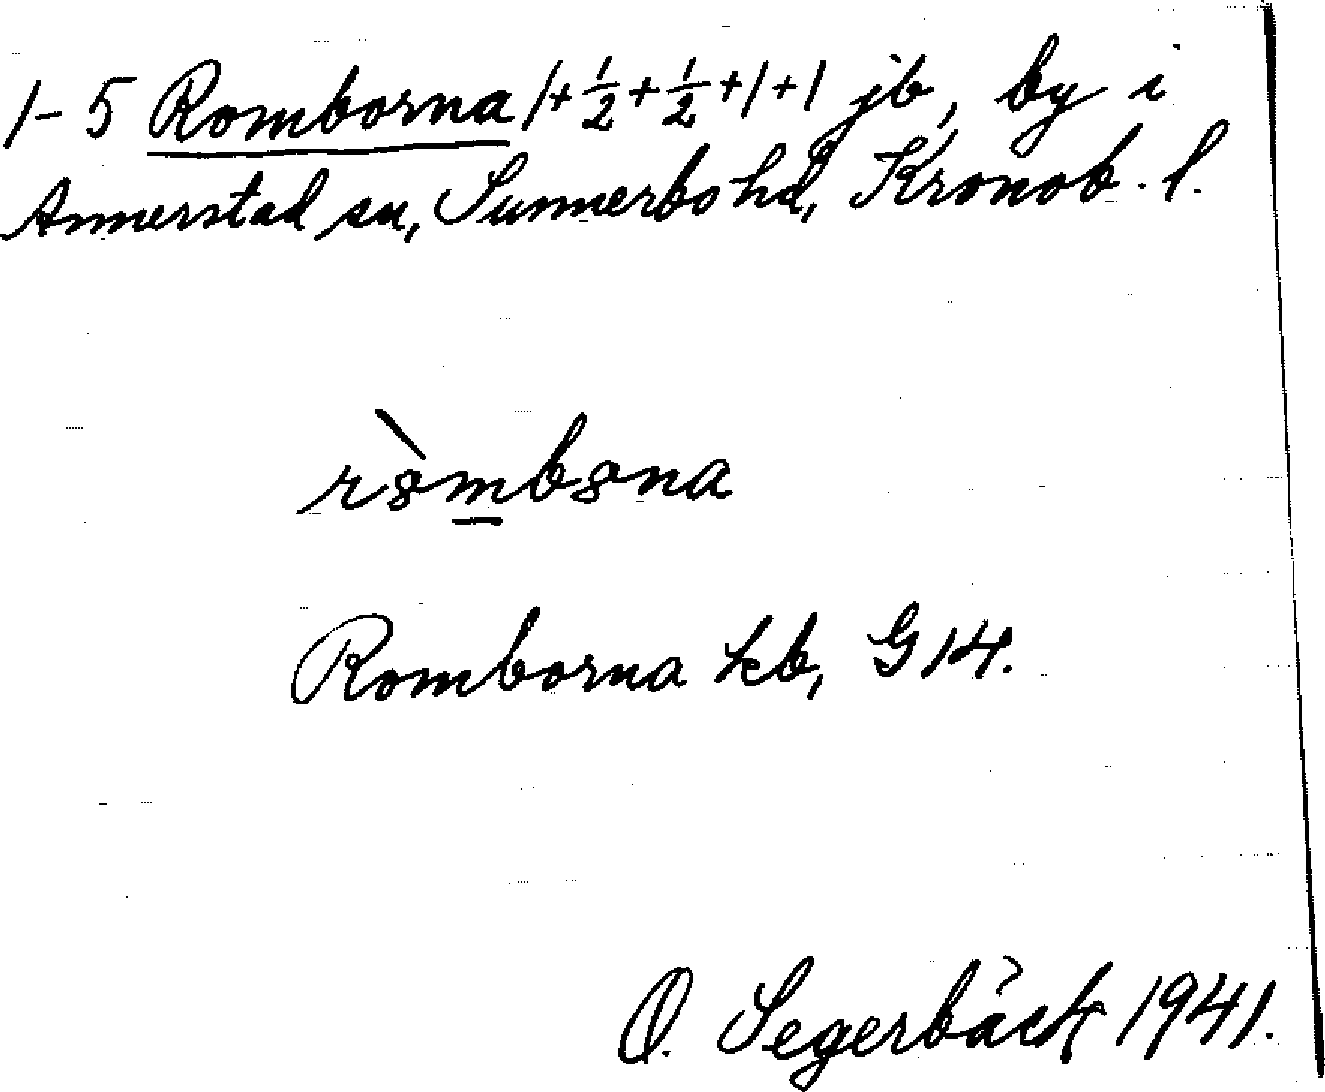 1-5 Romborna 1+½+½+1+1 jb, by i
Annerstad sn, Sunnerbo hd, Kronob. l.
ròmbona
Romborna kb, G14.
O. Segerbäck 1941.